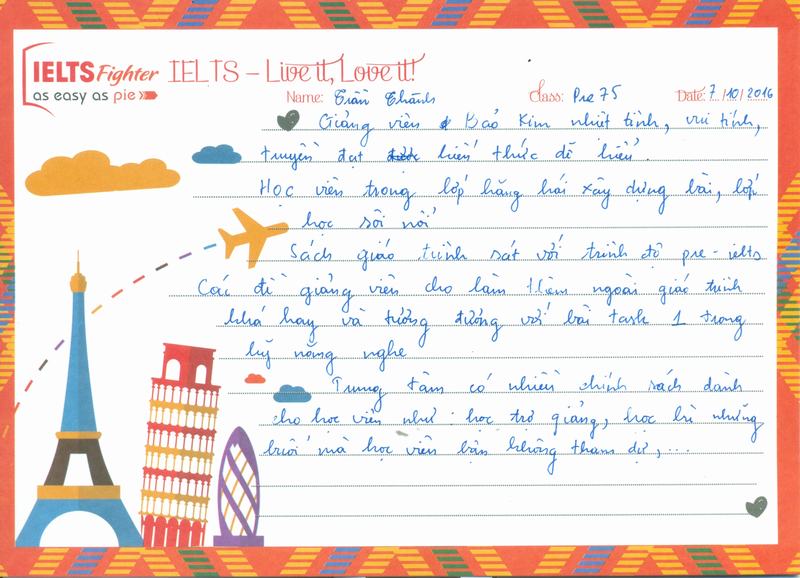 IELTS Fighter
as easy as pie
IELTS – Live it, Love it!
Name: Trần Thành Class: Pre 75 Date: 7/10/2016
Giảng viên Bảo Kim nhiệt tình, vui tính,
truyền đạt kiến thức dễ hiểu.
Học viên trong lớp hăng hái xây dựng bài, lớp
học sôi nổi
Sách giáo trình sát với trình độ pre-ielts
Các đề giảng viên cho làm thêm ngoài giáo trình
khá hay và tương đương với bài task 1 trong
kỹ năng nghe
Trung tâm có nhiều chính sách dành
cho học viên như: học trợ giảng, học bù những
buổi mà học viên bận không tham dự,...